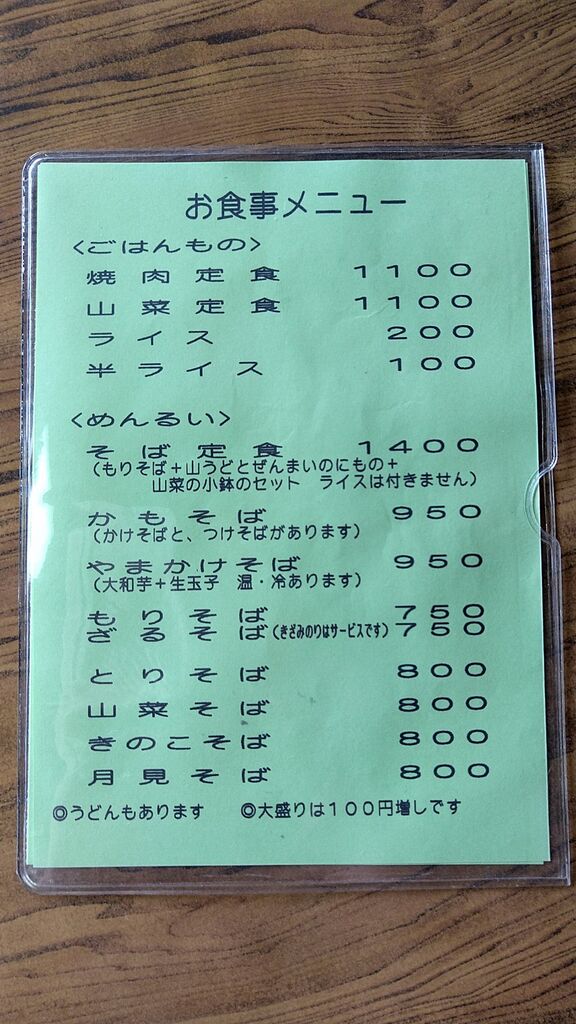 お食事メニュー
<ごはんもの>
焼肉定食 1100
山菜定食 1100
ライス 200
半ライス 100
<めんるい>
そば定食 1400
(もりそば+山うどとぜんまいのにもの+
山菜の小鉢のセット ライスは付きません)
かもそば 950
(かけそばと、つけそばがあります)
やまかけそば 950
(大和芋+生玉子 温・冷あります)
もりそば 750
ざるそば(きざみのりはサービスです) 750
とりそば 800
山菜そば 800
きのこそば 800
月見そば 800
◎うどんもあります ◎大盛りは100円増しです